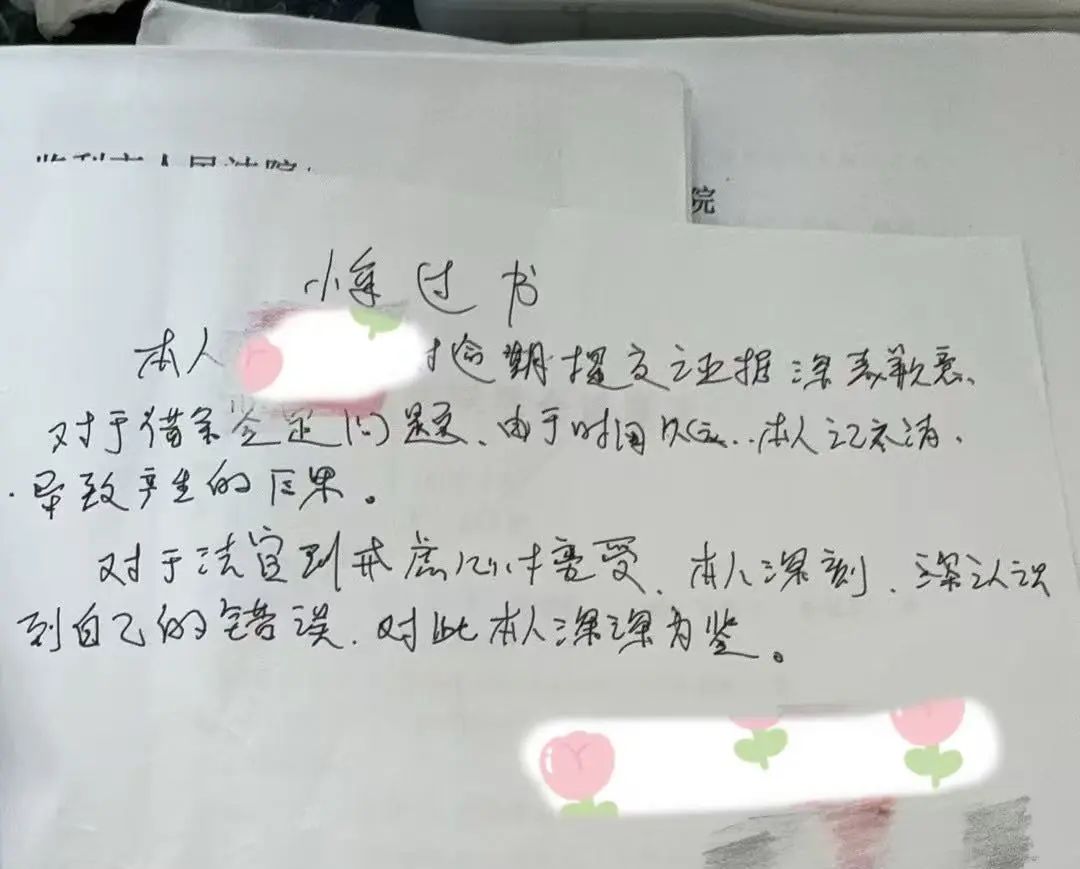 监利市人民法院:
院
悔过书
本人 对逾期提交证据深表歉意、
对于借条鉴定问题、由于时间久远..本人记不清、
导致产生的后果。
对于法官训戒虚心接受、本人深刻、深认识
到自己的错误、对此本人深深为鉴。